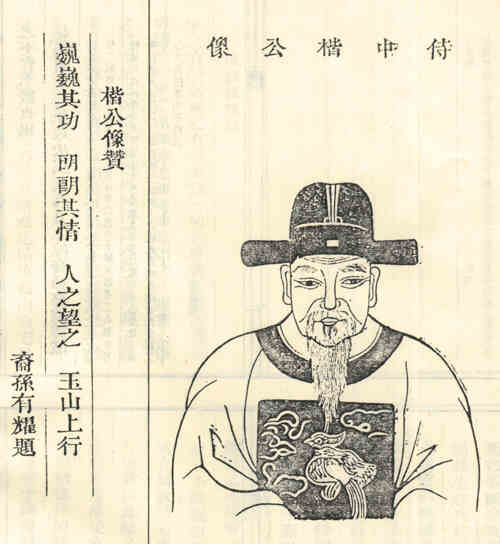 侍中楷公像
楷公像贊
巍巍其功 明朗其情 人之望之 玉山上行
裔孫有耀題